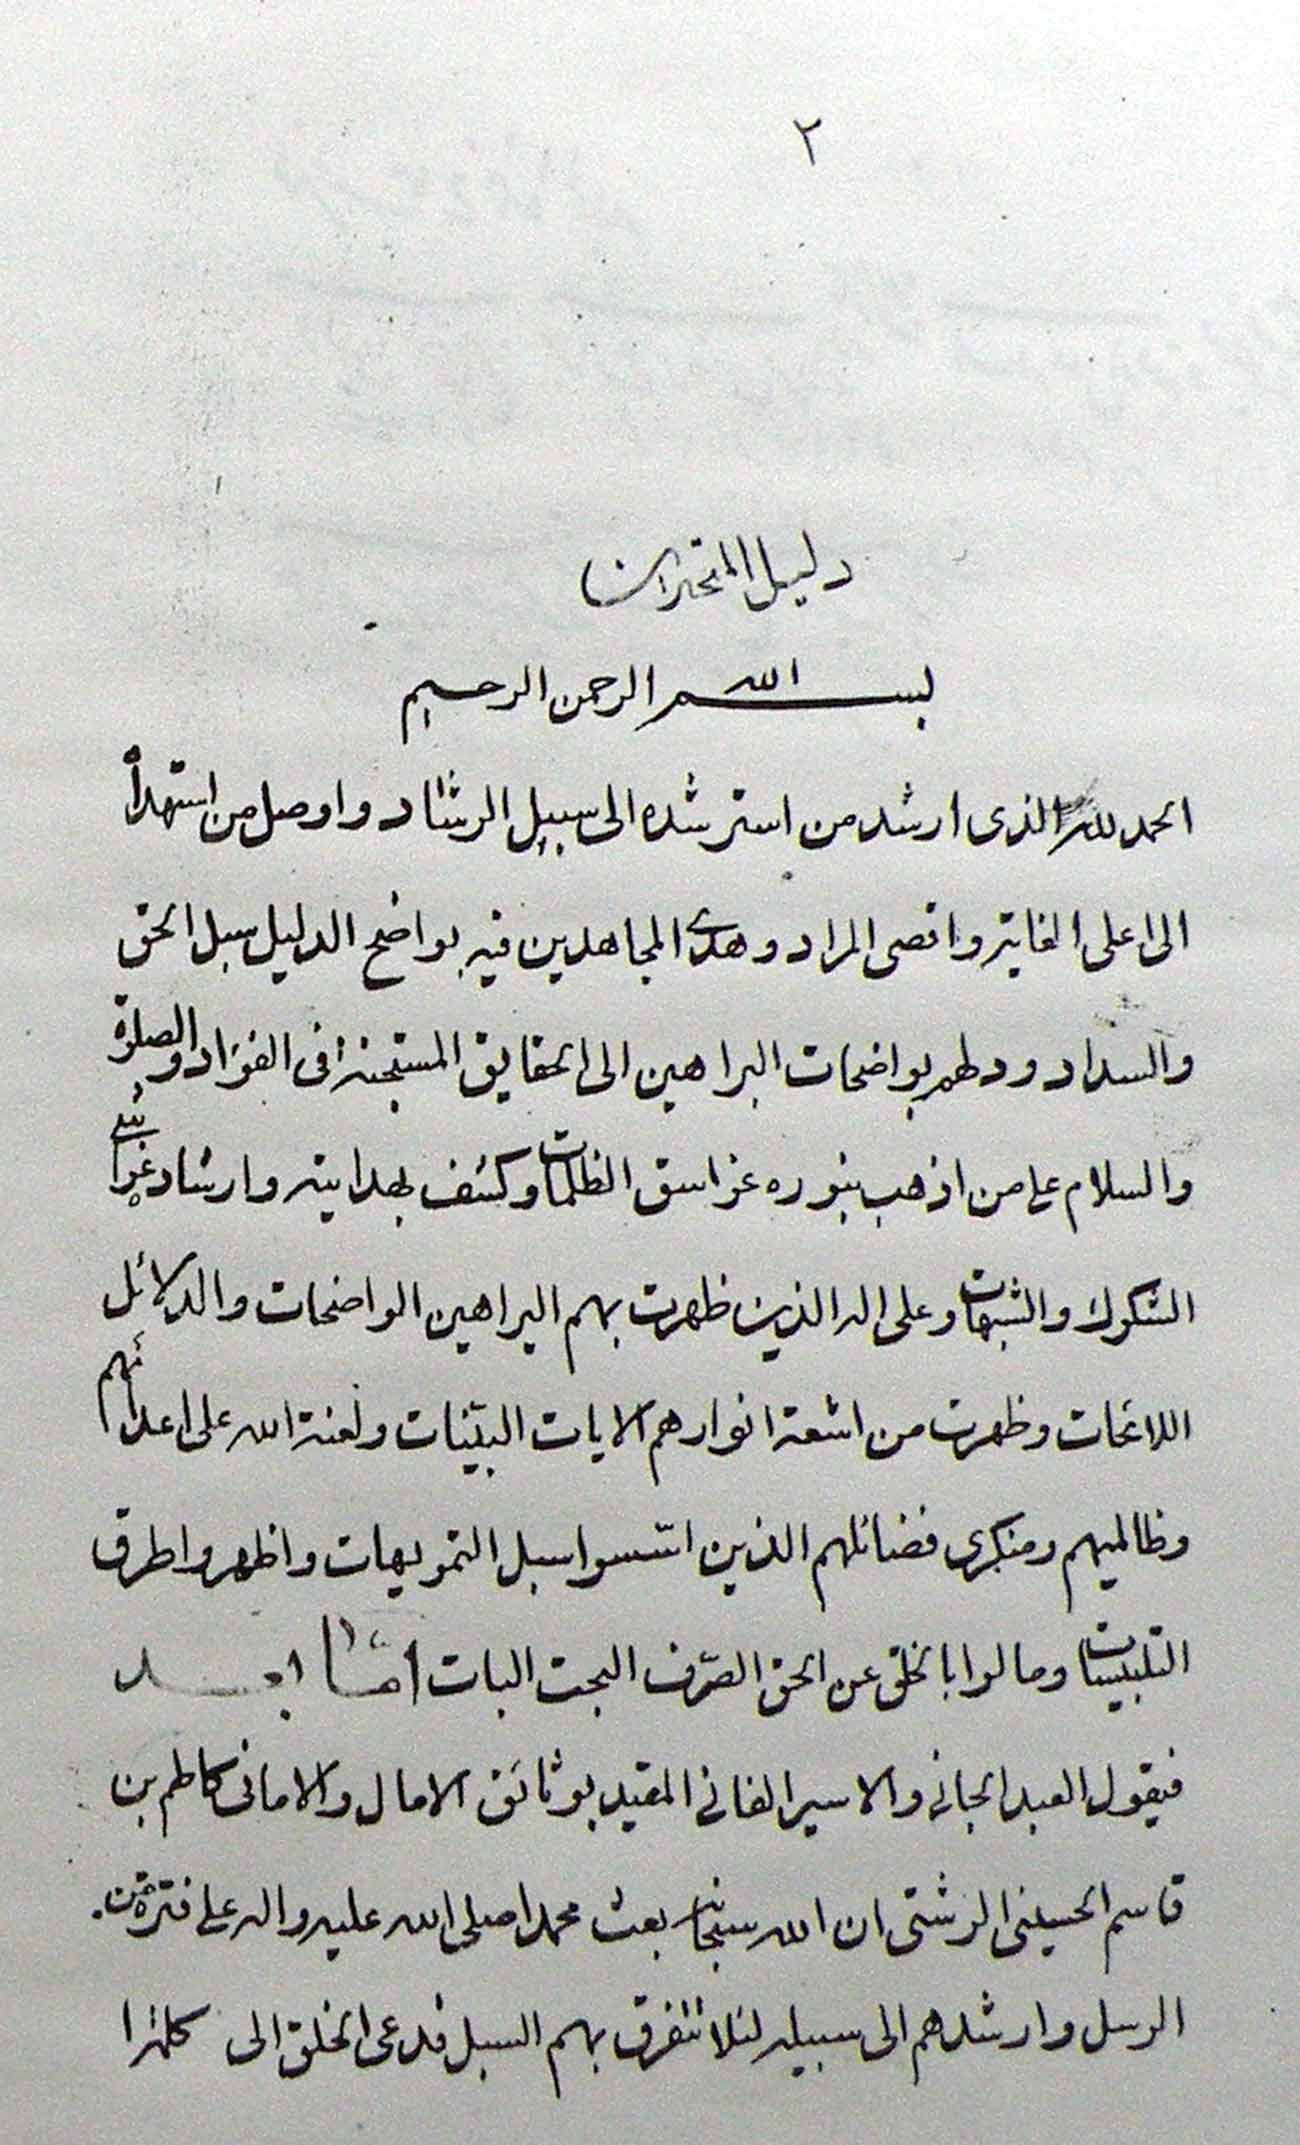 ٢
دليل المتحيرين
بسم الله الرحمن الرحيم
الحمد لله الذى ارشد من استرشده الى سبيل الرشاد و اوصل من استهداه
الى اعلى الغاية و اقصى المراد و هدى المجاهدين فيه بواضح الدليل سبل الحق
والسداد و دلهم بواضحات البراهين الى الحقايق المستجنة فى الفؤاد و الصلوة
والسلام على من اذهب بنوره غواسق الظلمات و كشف بهدايته و ارشاد
الشكوك و الشبهات و على اله الذين ظهرت بهم البراهين الواضحات و الدلائل
اللائحات و ظهرت من اشعة انوارهم الايات البينات و لعنة الله على اعدائهم
وظالميهم و منكرى فضائلهم الذين اسسوا سبل التمويهات و اظهروا طرق
التلبيسات و مالوا بالخلق عن الحق الصرف البحت البات امّا بعد
فيقول العبد الجانى و الاسير الفانى المقيد بوثائق الامال و الامانى كاظم بن
قاسم الحسينى الرشتى ان الله سبحانه بعث محمدا صلى الله عليه و اله على فترة من
الرسل و ارشدهم الى سبيله لئلا تتفرق بهم السبل فدعى الخلق الى كلمة